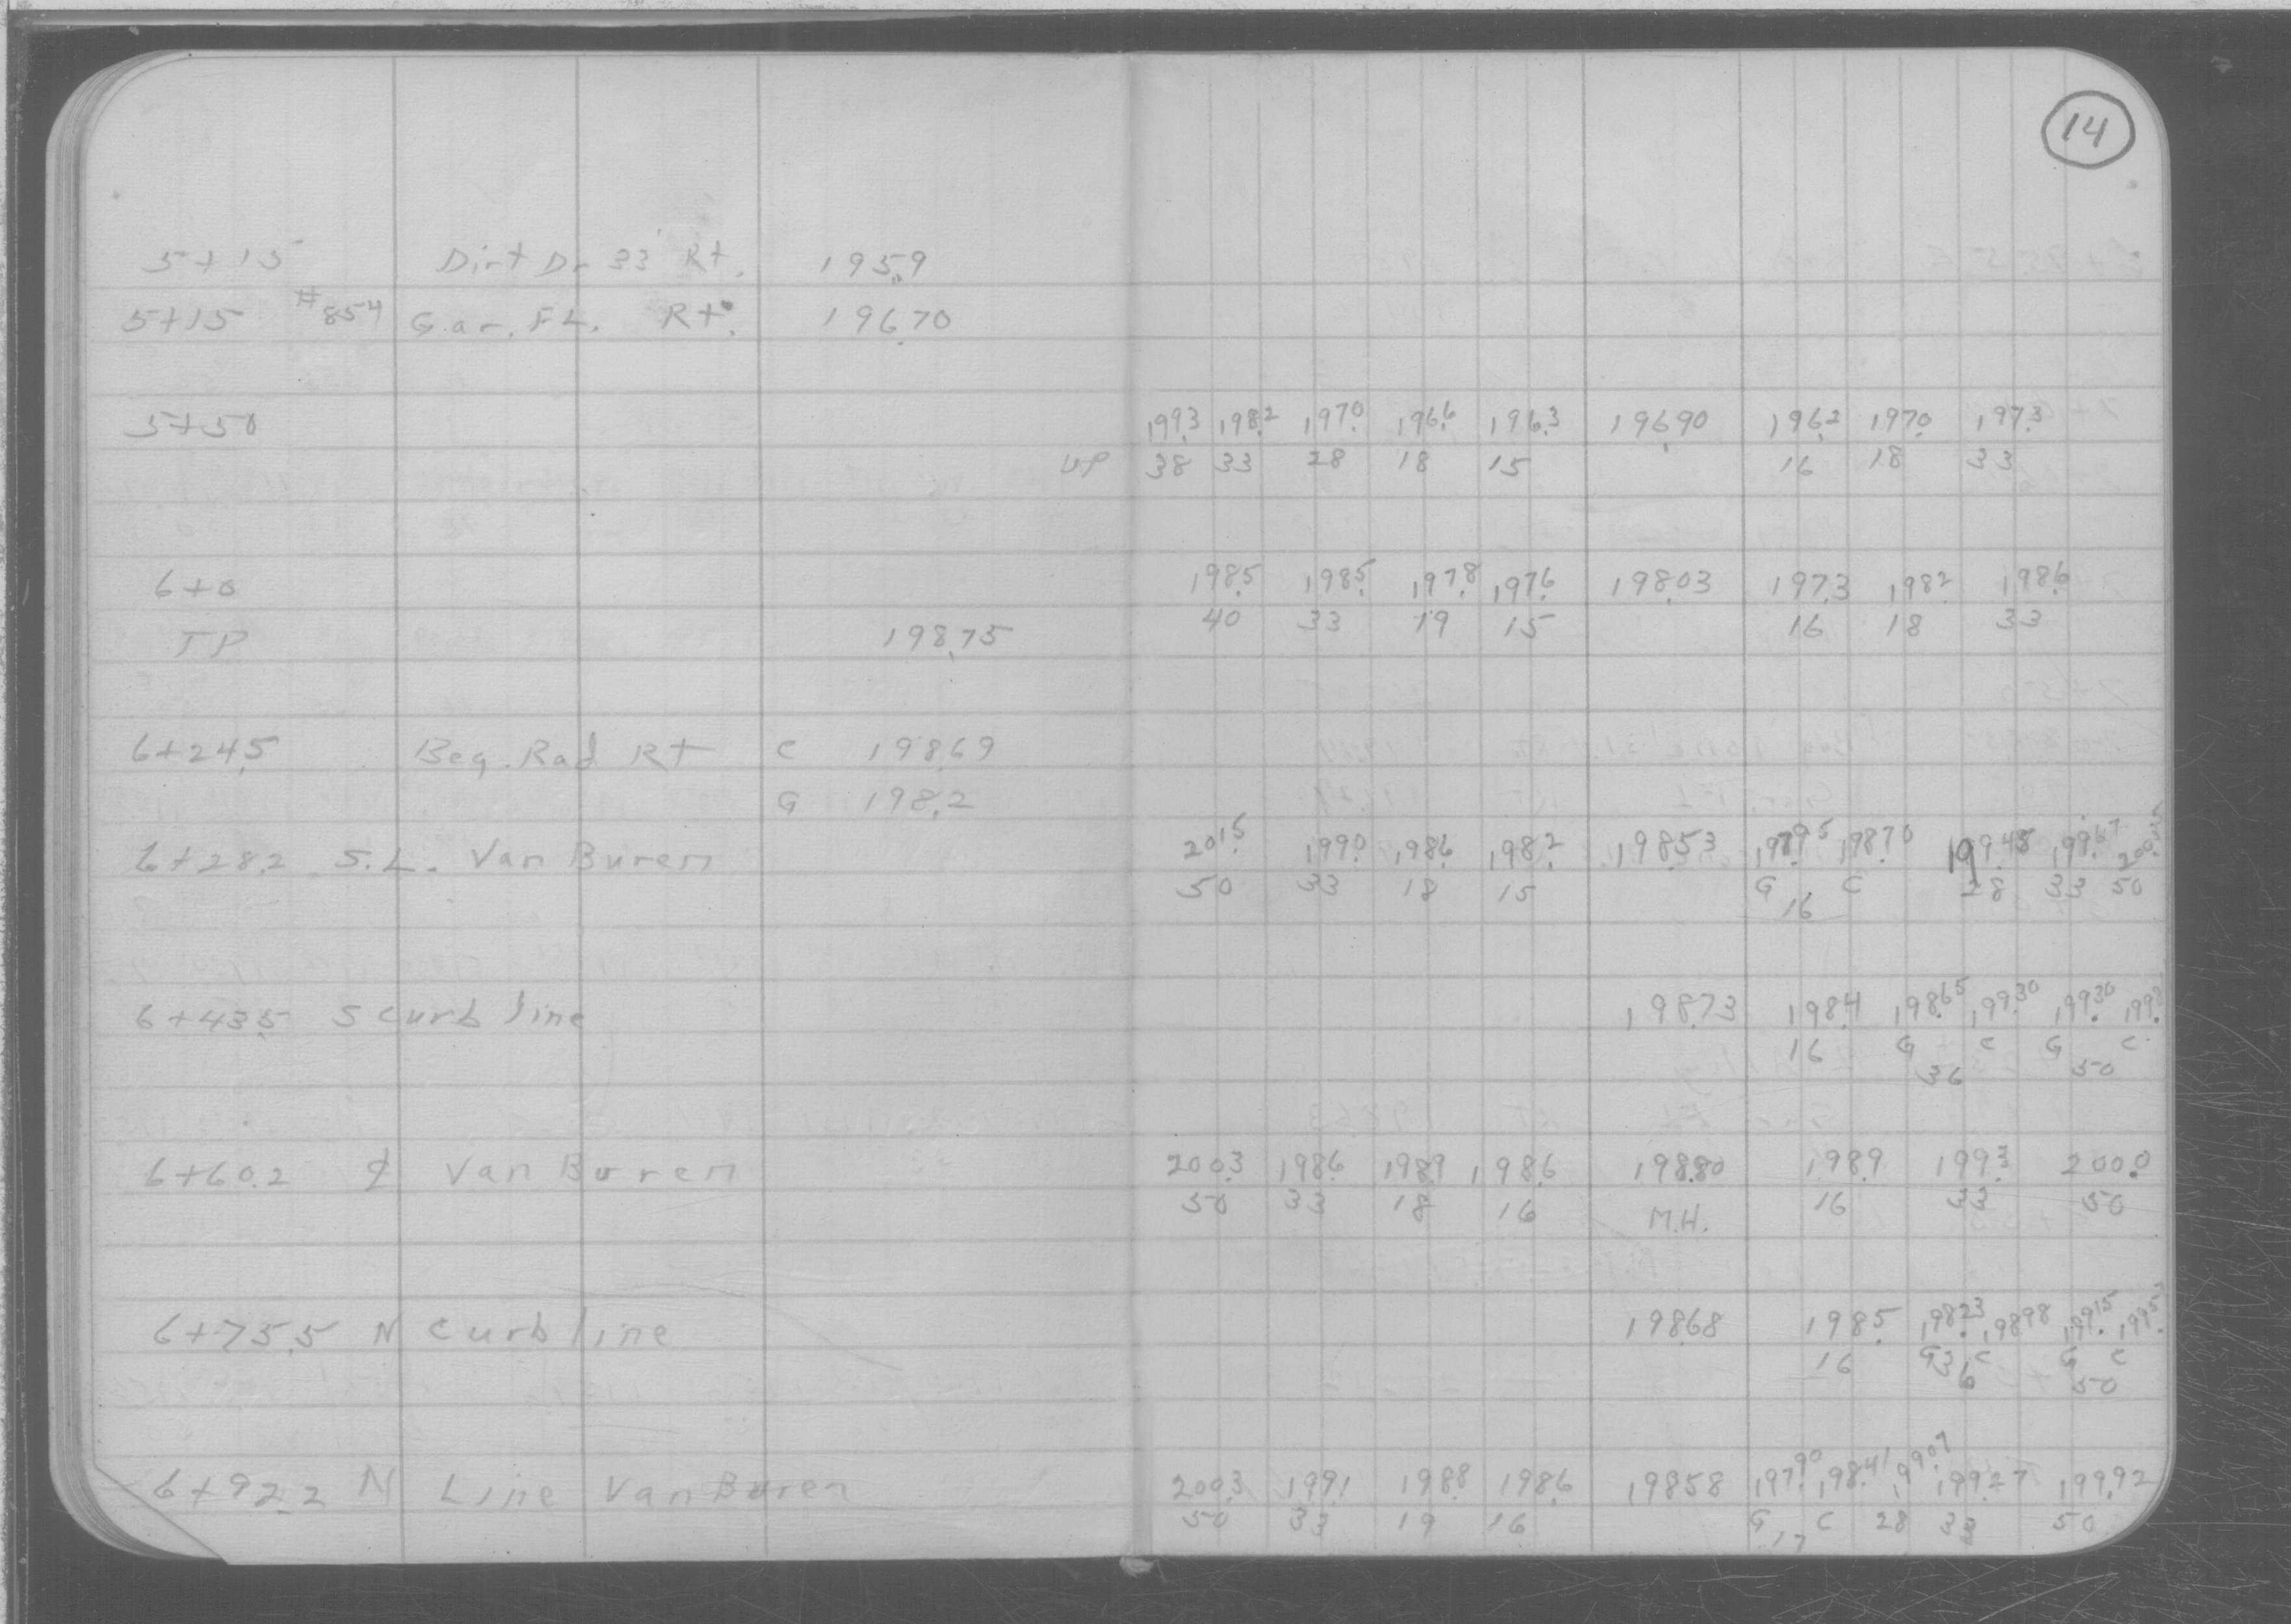 14
5+15 Dirt Dr 33' Rt. 195.9
5+15 #854 Gar. FL. Rt. 196.70
5+50 199.3 198.2 197.0 196.6 196.3 196.90 196.2 197.0 197.3
UP 38 33 28 18 15 16 18 33
6+0 198.5 198.5 197.8 197.6 198.03 197.3 198.2 198.6
40 33 19 15 16 18 33
TP 198.75
6+24.5 Beg. Rad Rt C 198.69
G 198.2
6+28.2 S.L. Van Buren 201.5 199.0 198.6 198.2 198.53 198.70 199.45 199.67
50 33 18 15 G C 28 33 50
16
6+43.5 S Curb line 198.73 198.4 198.65 199.30 199.30
16 G C G C
36 50
6+60.2 ₵ Van Buren 200.3 198.6 198.9 198.6 198.80 198.9 199.3 200.0
50 33 18 16 M.H. 16 33 50
6+75.5 N Curb line 198.68 198.5 198.23 198.98 199.15
16 G C G C
36 50
6+92.2 N Line Van Buren 200.3 199.1 198.8 198.6 198.58 197.90 198.41 199.07 199.27 199.92
50 33 19 16 G C 28 33 50
17